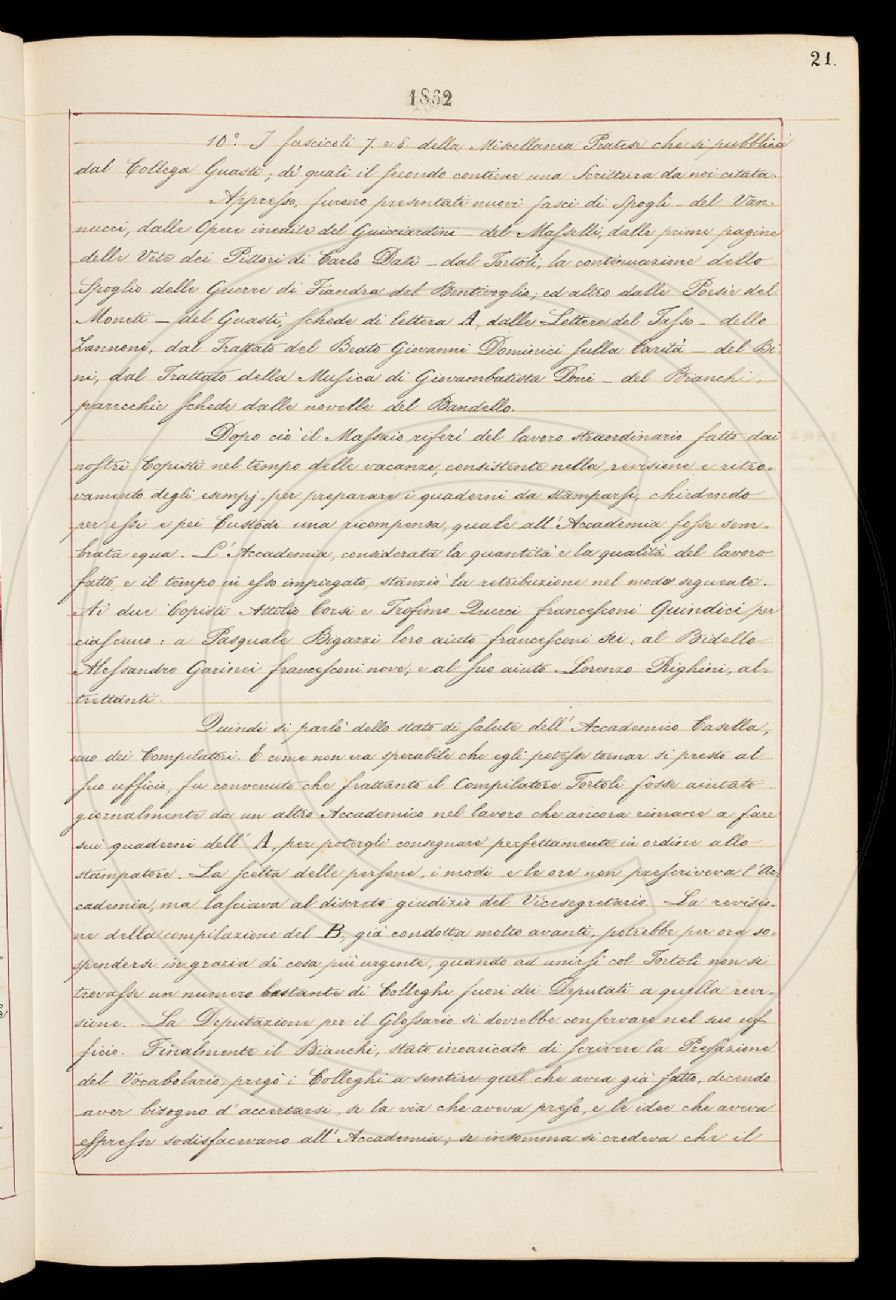 21.
1862
10.° I fascicoli 7. e 8. della Miscellanea Pratese che si pubblica
dal Collega Guasti; de' quali il secondo contiene una Scrittura da noi citata.
Appresso, furono presentati nuovi fasci di Spogli - del Van-
nucci, dalle Opere inedite del Guicciardini - del Masselli, dalle prime pagine
delle Vite dei Pittori di Carlo Dati - dal Tortoli, la continuazione dello
Spoglio delle Guerre di Fiandra del Bentivoglio; ed altro dalle Poesie del
Moneti - del Guasti, schede di lettera A, dalle Lettere del Tasso - dello
Zannoni, dal Trattato del Beato Giovanni Dominici sulla Carità - del Bi-
ni, dal Trattato della Musica di Giovambatista Doni - del Bianchi,
parecchie schede dalle novelle del Bandello.
Dopo ciò il Massaio riferì del lavoro straordinario fatto dai
nostri Copisti nel tempo delle vacanze, consistente nella revisione e ritro-
vamento degli esempj per preparare i quaderni da stamparsi, chiedendo
per essi e pei Custodi una ricompensa, quale all'Accademia fosse sem-
brata equa. L'Accademia, considerata la quantità e la qualità del lavoro
fatto, e il tempo in esso impiegato, stanziò la retribuzione nel modo seguente.
Ai due Copisti Attilio Corsi e Trofimo Querci francesconi Quindici per
ciascuno: a Pasquale Bigazzi loro aiuto francesconi sei: al Bidello
Alessandro Garinei francesconi nove, e al suo aiuto Lorenzo Righini, al-
trettanti.
Quindi si parlò dello stato di salute dell'Accademico Casella,
uno dei Compilatori. E come non era sperabile che egli potesse tornar sì presto al
suo ufficio, fu convenuto che frattanto il Compilatore Tortoli fosse aiutato
giornalmente da un altro Accademico nel lavoro che ancora rimane a fare
sui quaderni dell'A, per potergli consegnare perfettamente in ordine allo
stampatore. La scelta delle persone, i modi e le ore non prescriveva l'Ac-
cademia, ma lasciava al discreto giudizio del Vicesegretario. La revisio-
ne della compilazione del B, già condotta molto avanti, potrebbe per ora so-
spendersi in grazia di cosa più urgente, quando ad unirsi col Tortoli non si
trovasse un numero bastante di Colleghi fuori dei Deputati a quella revi-
sione. La Deputazione per il Glossario si dovrebbe conservare nel suo uf-
ficio. Finalmente il Bianchi, stato incaricato di scrivere la Prefazione
del Vocabolario, pregò i Colleghi a sentire quel che avea già fatto, dicendo
aver bisogno d'accertarsi, se la via che aveva preso, e le idee che aveva
espresse sodisfacevano all'Accademia; se insomma si credeva che il